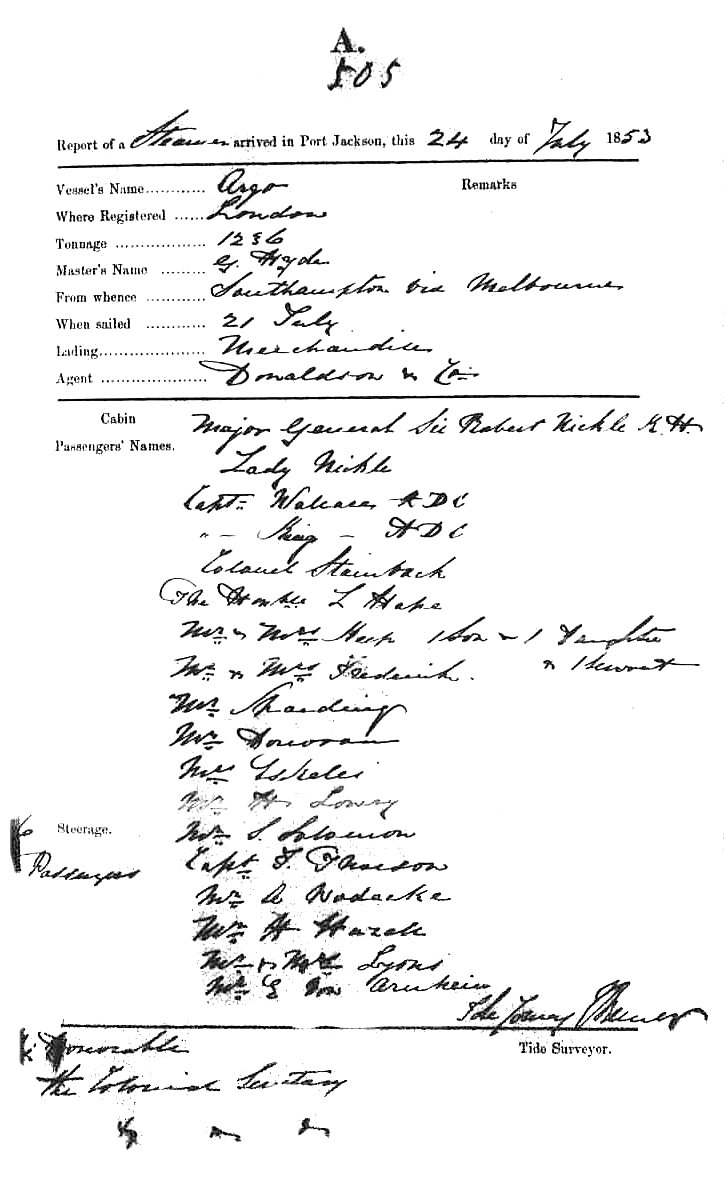 A.
505
Report of a Steamer arrived in Port Jackson, this 24 day of July 1853
Vessel's Name............ Argo
Remarks
Where Registered ...... London
Tonnage .................. 1236
Master's Name ......... G. Hyde
From whence ............ Southampton via Melbourne
When sailed ............ 21 July
Lading..................... Merchandise
Agent ..................... Donaldson & Co
Cabin
Passengers' Names.
Major General Sir Robert Nickle K.H.
Lady Nickle
Capt. Wallace ADC
" - King - ADC
Colonel Stainback
The Honble L Hope
Mr & Mrs Heep 1 Son & 1 Daughter
& 1 Servant
Mr & Mrs Frederick.
Mr
Mr Donovan
Mrs Eskeles
Mr H Lowry
Steerage.
6
Passengers
Mr S. Solomon
Capt F.
Mr A Wodecke
Mr H
Mr & Mrs Lyons
Mr G Von Arnheim
Tide Surveyor.
Honorable
the Colonial Secretary